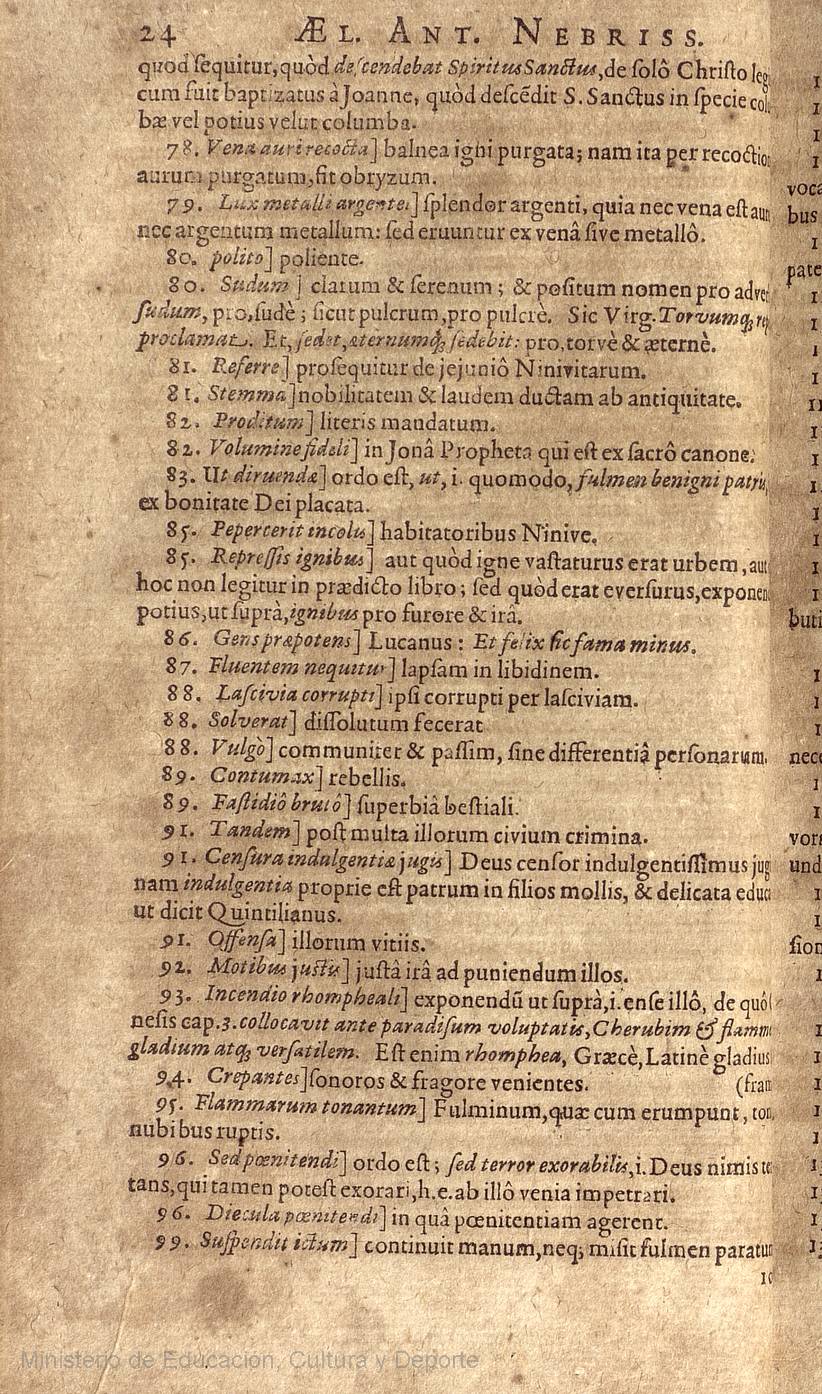 24 ÆL. ANT. NEBRISS.
quod ſequitur,quòd deſcendebat Spiritus Sanctus,de ſolô Chriſto leg
cum fuit baptizatus à Joanne, quòd deſcẽdit S. Sanctus in ſpecie col
bæ vel potius velut columba.
78. Vena auri recocta] balnea igni purgata; nam ita per recoctio
aurum purgatum,fit obryzum.
79. Lux metalli argentei] ſplendor argenti, quia nec vena eſt aur
nec argentum metallum: ſed eruuntur ex venâ ſive metallô.
80. polito] poliente.
80. Sudum ] clarum & ſerenum ; & poſitum nomen pro adver
ſudum, pro,ſudè ; ſicut pulcrum,pro pulcrè. Sic Virg.Torvumq; re
proclamat. Et, ſedet,æternumq; ſedebit: pro,torvè & æternè.
81. Referre] proſequitur de jejuniô Ninivitarum.
81. Stemma]nobilitatem & laudem ductam ab antiquitate.
82. Proditum] literis mandatum.
82. Volumine fideli] in Jonâ Propheta qui eſt ex ſacrô canone.
83. Ut diruenda] ordo eſt, ut, i. quomodo, fulmen benigni patris
ex bonitate Dei placata.
85. Pepercerit incolis] habitatoribus Ninive.
85. Repreſſis ignibus] aut quòd igne vaſtaturus erat urbem, aut
hoc non legitur in prædicto libro; ſed quòd erat everſurus,exponen
potius,ut ſuprà,ignibus pro furore & irâ.
86. Gens præpotens] Lucanus : Et felix ſic fama minus.
87. Fluentem nequitur] lapſam in libidinem.
88. Laſcivia corrupti] ipſi corrupti per laſciviam.
88. Solverat] diſſolutum fecerat
88. Vulgò] communiter & paſſim, ſine differentiâ perſonarum.
89. Contumax] rebellis.
89. Faſtidiô brutô] ſuperbiâ beſtiali.
91. Tandem] poſt multa illorum civium crimina.
91. Cenſura indulgentia jugis] Deus cenſor indulgentiſſimus jug
nam indulgentia proprie eſt patrum in filios mollis, & delicata educ
ut dicit Quintilianus.
91. Offenſa] illorum vitiis.
92. Motibus juſtis] juſtâ irâ ad puniendum illos.
93. Incendio rhompheali] exponendũ ut ſuprà,i.enſe illô, de quô
neſis cap.3.collocavit ante paradiſum voluptatis,Cherubim & flamm
gladium atq; verſatilem. Eſt enim rhomphea, Græcè,Latinè gladius
94. Crepantes]ſonoros & fragore venientes. (fram
95. Flammarum tonantum] Fulminum,quæ cum erumpunt, ton
nubibus ruptis.
96. Sed pœnitendi] ordo eſt; ſed terror exorabilis,i.Deus nimis te
tans,qui tamen poteſt exorari,h.e.ab illô venia impetrari.
96. Diecula pœnitendi] in quâ pœnitentiam agerent.
99. Suſpendit ictum] continuit manum,neq; miſit fulmen paratur
10
voca
bus
pate
buti
nece
vor
und
ſion
Ministerio de Educación, Cultura y Deporte